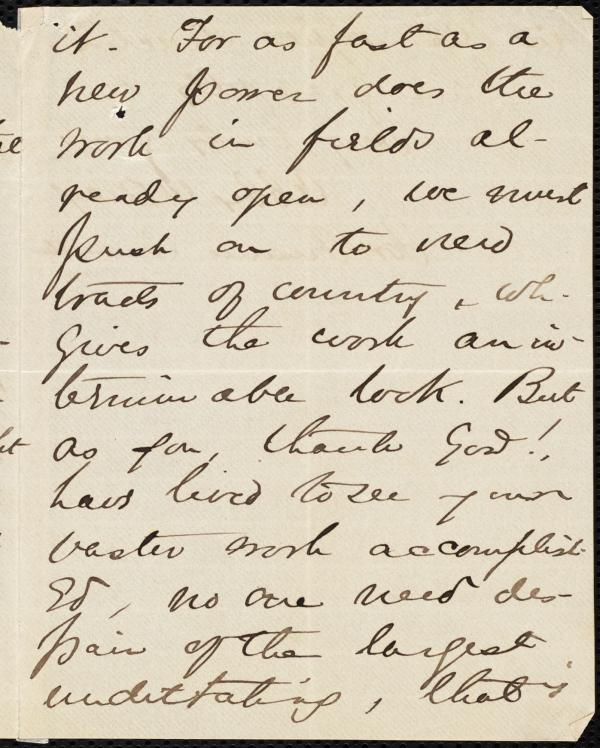 it. For as fast as a
new power does the
work in fields al-
ready open, we must
push on to new
tracts of country, wh.
gives the work an in-
terminable look. But
as you, thank God!,
have lived to see your
vaster work accomplish-
ed, no one need des-
pair of the largest
undertaking, that's